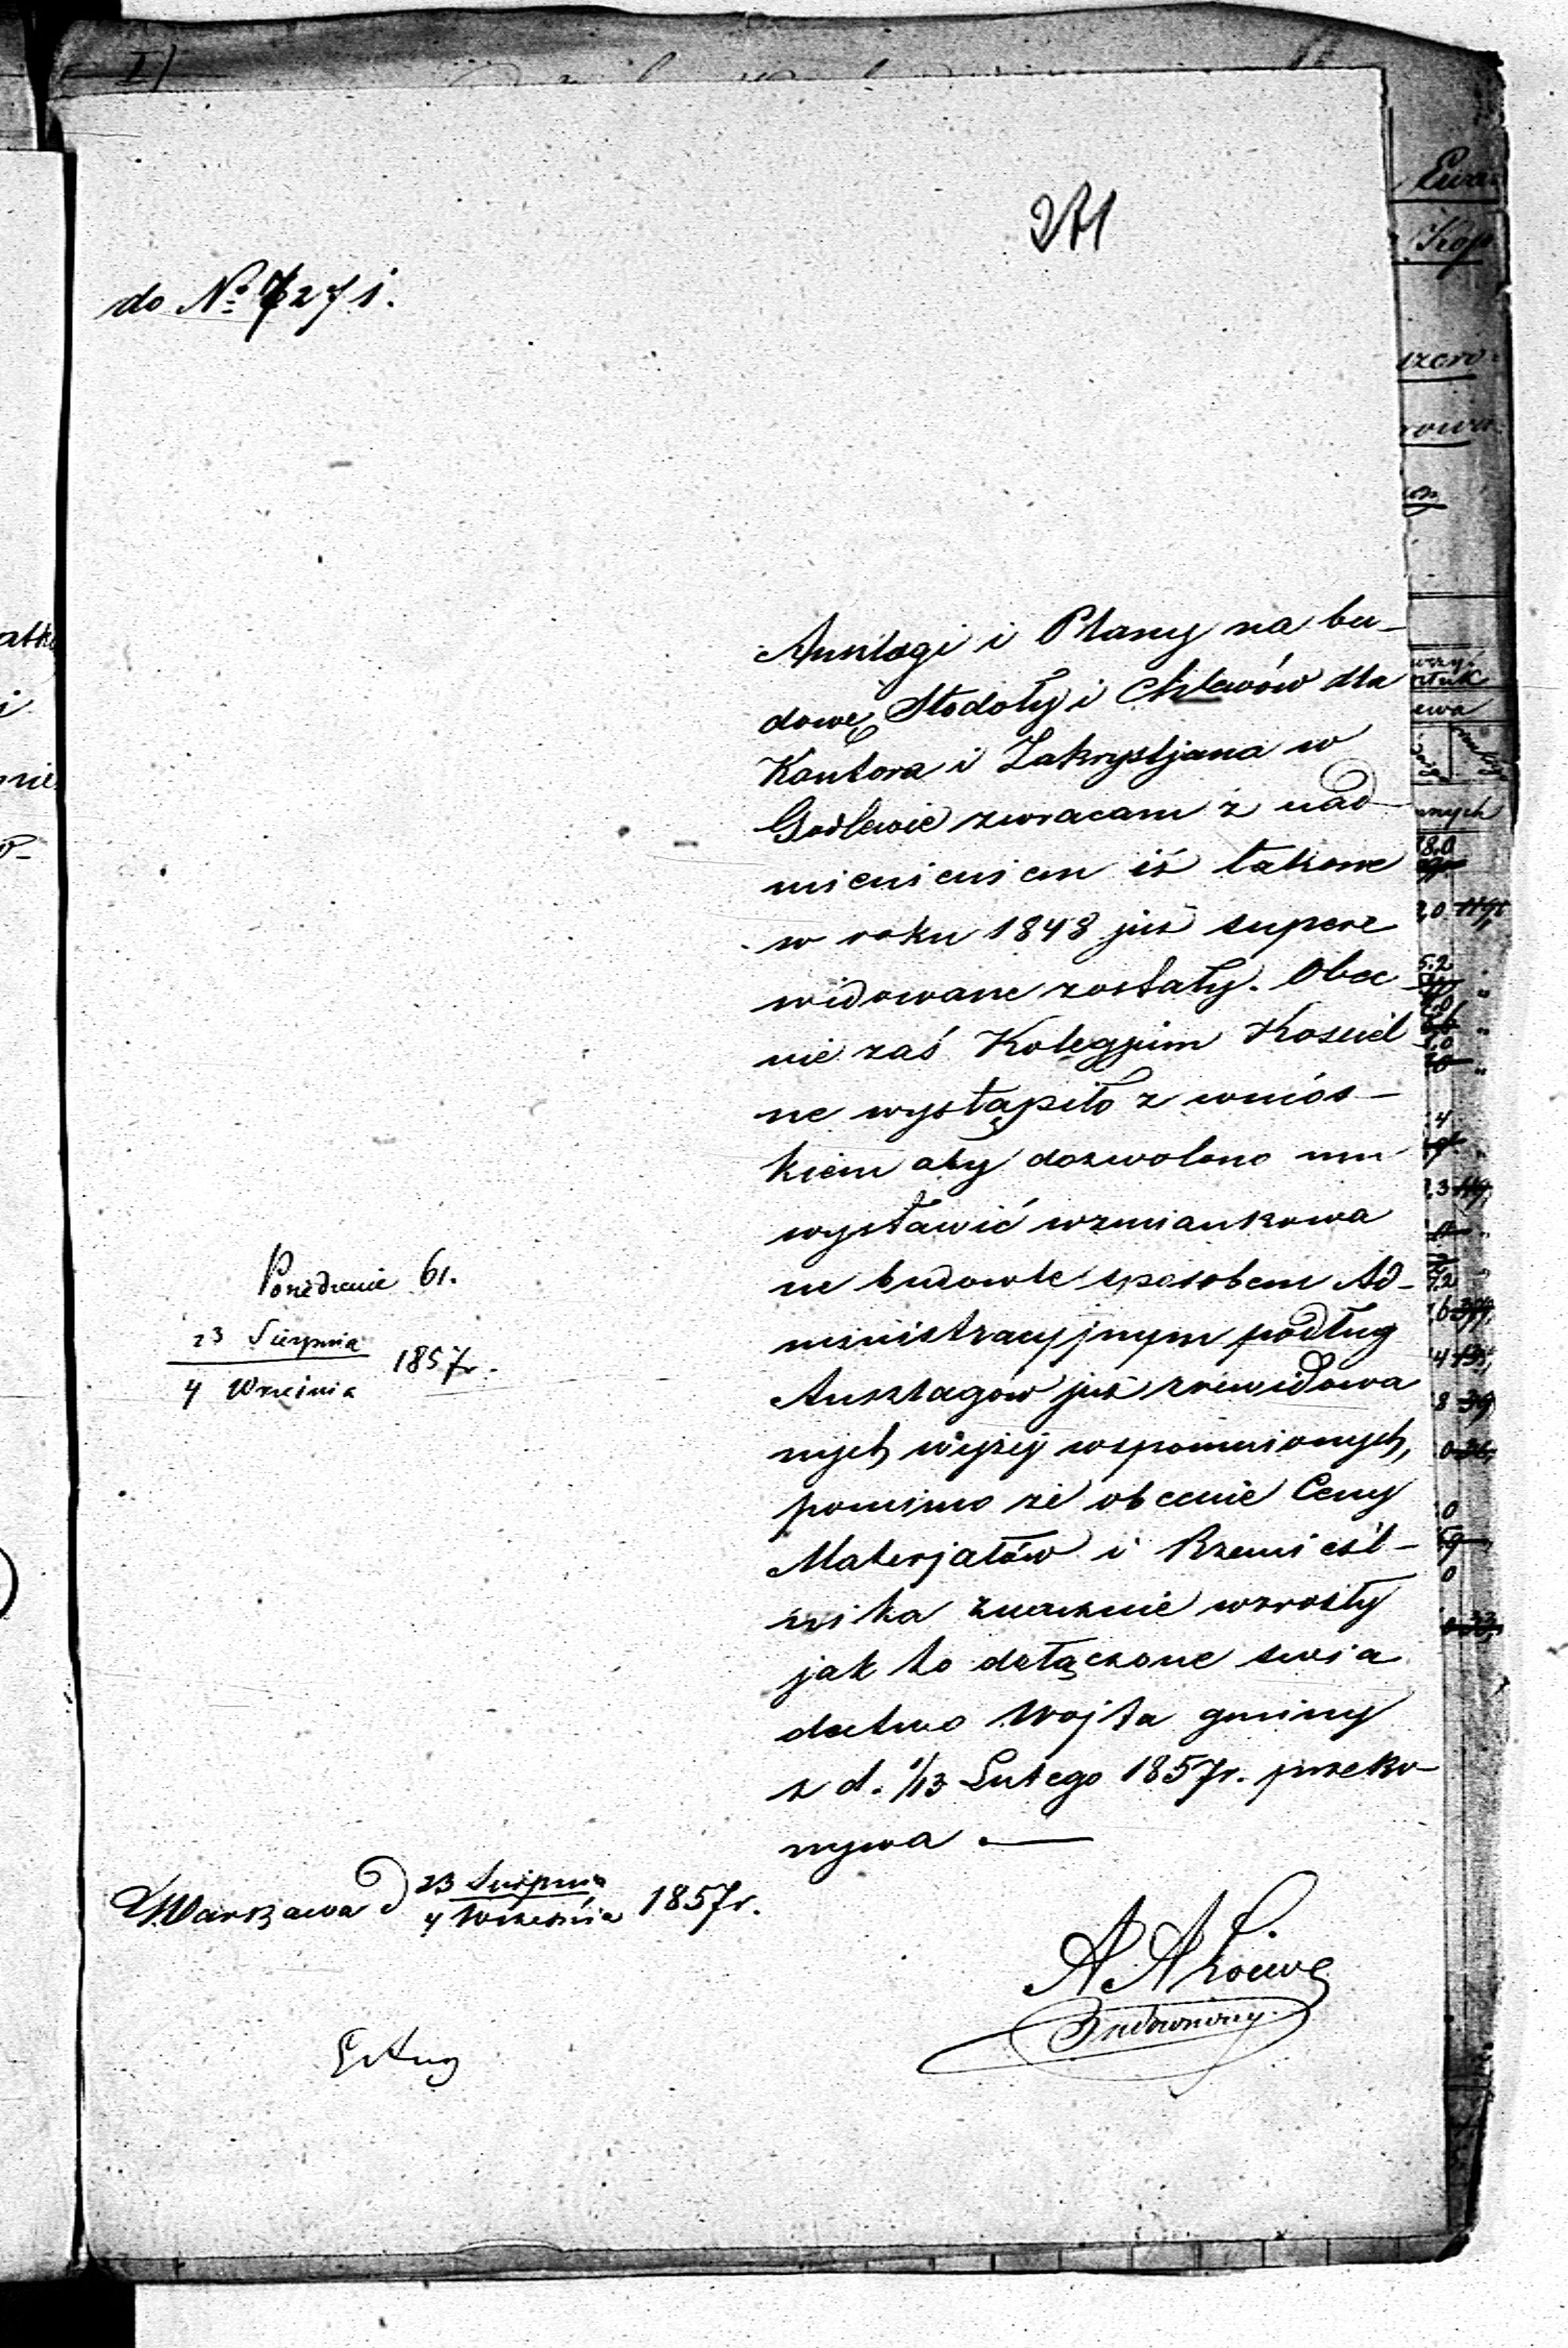 271
do № 7271.
Anszlagi i Plany na bu-
dowę Stodoły i Chlewów dla
Kantora i Zakrystjana w
Godlewie zwracam z nad
mienieniem iż takowe
w roku 1848 już superre
widowane zostały. Obec
nie zaś Kolegjum Kościel
ne wystąpiło z wnios-
kiem aby dozwolono mu
wystawić wzmiankowa
ne budowle sposobem Ad-
ministracyjnym podług
Anszlagów już zrewidowa
nych wyżej wspomnionych,
pomimo że obecnie Ceny
Materjałów i Rzemieśl-
nika znacznie wzrosły
jak to dołączone świa
dectwo Wojta gminy
z d. 1/13 Lutego 1857r. przeko-
nywa .—
Posiedzenie 61.
23 Sierpnia
4 Września 1857r.
Warszawa d 23 Sierpnia
4 Września 1857r.
A Loewe
Budowniczy.